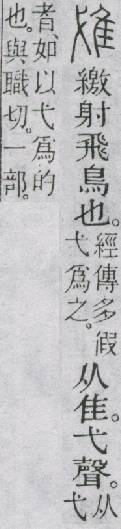 隿繳射飛鳥也。經傳多假弋爲之。从隹。弋聲。从弋
者。如以弋爲的
也。與職切。一部。